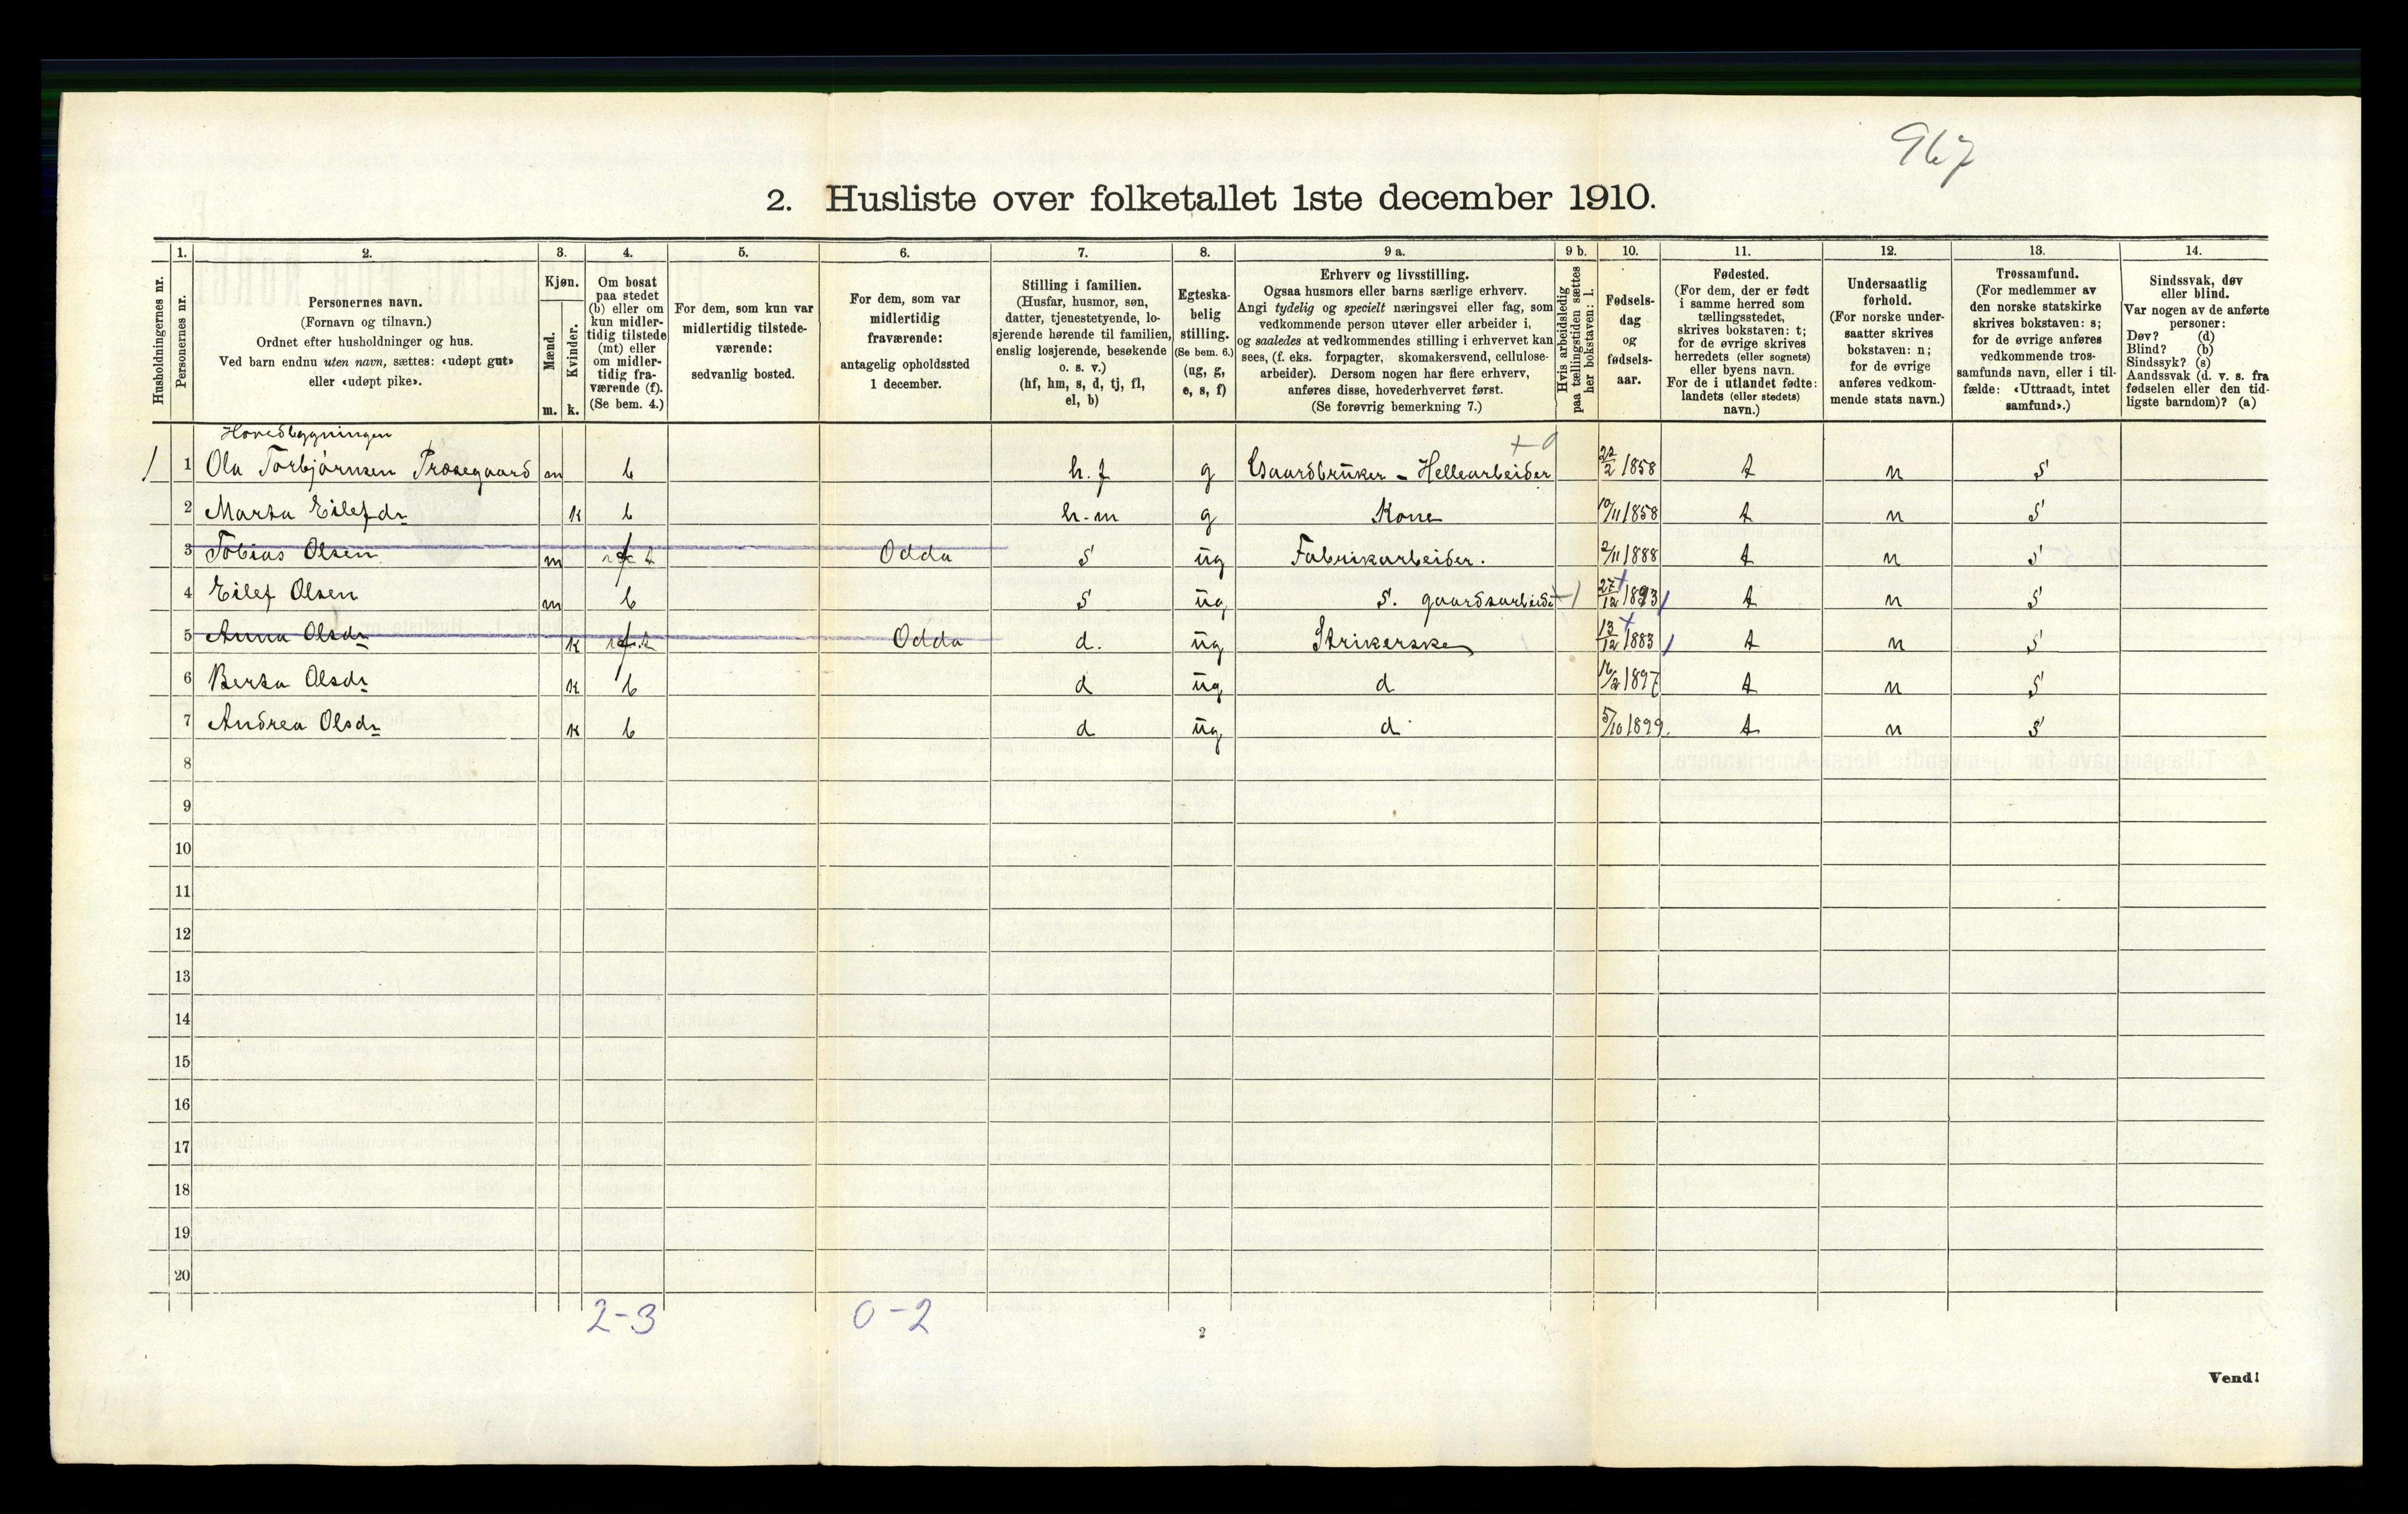 967
2. Husliste over folketallet 1ste december 1910.
Husholdningernes nr.
1.
Personernes nr.
2.
Personernes navn.
(Fornavn og tilnavn.)
Ordnet efter husholdninger og hus.
Ved barn endnu uten navn, sættes: «udøpt gut»
eller «udøpt pike».
3.
Kjøn.
Mænd.
Kvinder.
m. k.
4.
Om bosat
paa stedet
(b) eller om
kun midler-
tidig tilstede
(mt) eller
om midler-
tidig fra-
værende (f).
(Se bem. 4.)
5.
For dem, som kun var
midlertidig tilstede-
værende:
sedvanlig bosted.
6.
For dem, som var
midlertidig
fraværende:
antagelig opholdssted
1 december.
7.
Stilling i familien.
(Husfar, husmor, søn,
datter, tjenestetyende, lo-
sjerende hørende til familien,
enslig losjerende, besøkende
o. s. v.)
(hf, hm, s, d, tj, fl,
el, b)
8.
Egteska-
belig
stilling.
(Se bem. 6.)
(ug, g,
e, s, f)
9 a.
Erhverv og livsstilling.
Ogsaa husmors eller barns særlige erhverv.
Angi tydelig og specielt næringsvei eller fag, som
vedkommende person utøver eller arbeider i,
og saaledes at vedkommendes stilling i erhvervet kan
sees, (f. eks. forpagter, skomakersvend, cellulose-
arbeider). Dersom nogen har flere erhverv,
anføres disse, hovederhvervet først.
(Se forøvrig bemerkning 7.)
9 b.
Hvis arbeidsledig
paa tællingstiden sættes
her bokstaven: l.
10.
Fødsels-
dag
og
fødsels-
aar.
11.
Fødested.
(For dem, der er født
i samme herred som
tællingsstedet,
skrives bokstaven: t;
for de øvrige skrives
herredets (eller sognets)
eller byens navn.
For de i utlandet fødte:
landets (eller stedets)
navn.)
12.
Undersaatlig
forhold.
(For norske under-
saatter skrives
bokstaven: n;
for de øvrige
anføres vedkom-
mende stats navn.)
13.
Trossamfund.
(For medlemmer av
den norske statskirke
skrives bokstaven: s;
for de øvrige anføres
vedkommende tros-
samfunds navn, eller i til-
fælde: «Uttraadt, intet
samfund».)
14.
Sindssvak, døv
eller blind.
Var nogen av de anførte
personer:
Døv? (d)
Blind? (b)
Sindssyk? (s)
Aandssvak (d. v. s. fra
fødselen eller den tid-
ligste barndom)? (a)
Hovedbygningen
1 1 Ola Torbjørnsen Præsegaard m b h.f g Gaardbruker - Hellearbeider +0 22/2 1858 t n s
2 Marta Eilefdr k b h-m g Kone 10/11 1858 t n s
3 Tobias Olsen m f Odda s ug Fabrikarbeider. 2/11 1888 t n s
4 Eilef Olsen m b s ug s. gaardsarbeide 27/12 1893 t n s
5 Anna Olsdr k f Odda d. ug Strikerske 13/12 1883 t n s
6 Berta Olsdr k b d ug d 16/2 1897 t n s
7 Andrea Olsdr k b d ug d 5/10 1899. t n s
8
9
10
11
12
13
14
15
16
17
18
19
20
2-3 0-2
2
Vend!